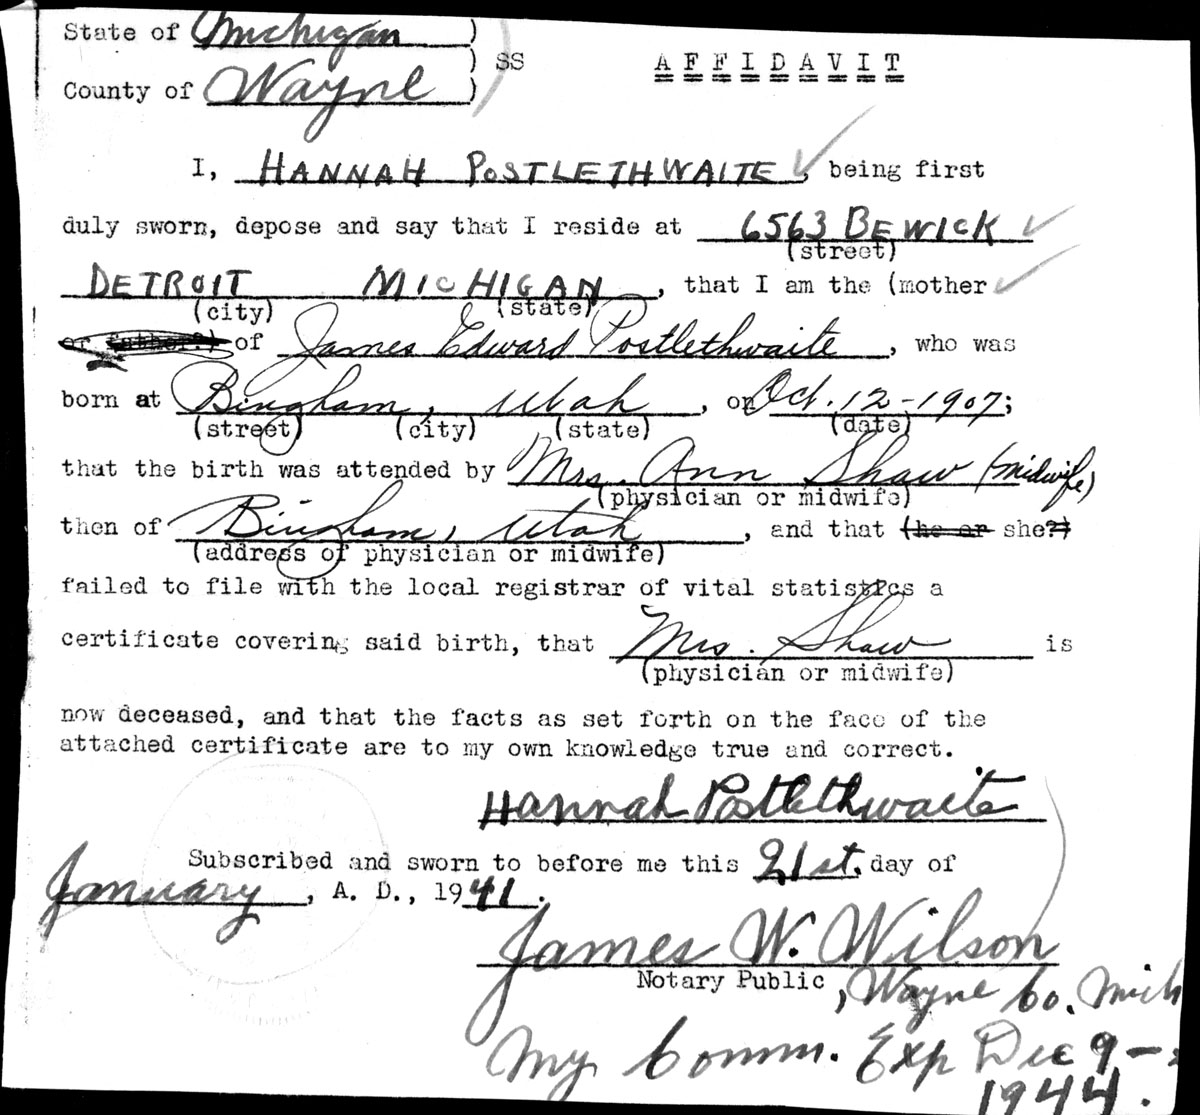 State of Michigan )
) SS AFFIDAVIT
County of Wayne )
I, HANNAH POSTLETHWAITE, being first
duly sworn, depose and say that I reside at 6563 BEWICK
(street)
DETROIT MICHIGAN, that I am the (mother
(city) (state)
or father?) of James Edward Postlethwaite, who was
born at Bingham, Utah, on Oct. 12-1907;
(street) (city) (state) (date)
that the birth was attended by Mrs. Ann Shaw (midwife)
(physician or midwife)
then of Bingham, Utah, and that (he or she?)
(address of physician or midwife)
failed to file with the local registrar of vital statistics a
certificate covering said birth, that Mrs. Shaw is
(physician or midwife)
now deceased, and that the facts as set forth on the face of the
attached certificate are to my own knowledge true and correct.
Hannah Postlethwaite
Subscribed and sworn to before me this 21st. day of
January, A. D., 1941.
James W. Wilson
Notary Public, Wayne Co. Mich
My Comm. Exp Dec 9-
1944.